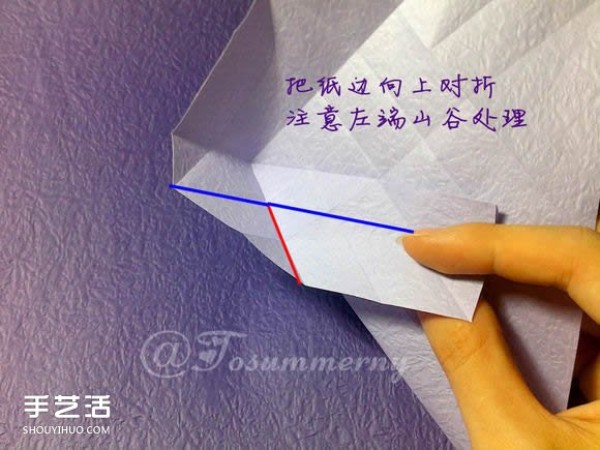 把纸边向上对折
注意左端山谷处理
@Tosummerny
手艺活
SHOUYIHUO.COM